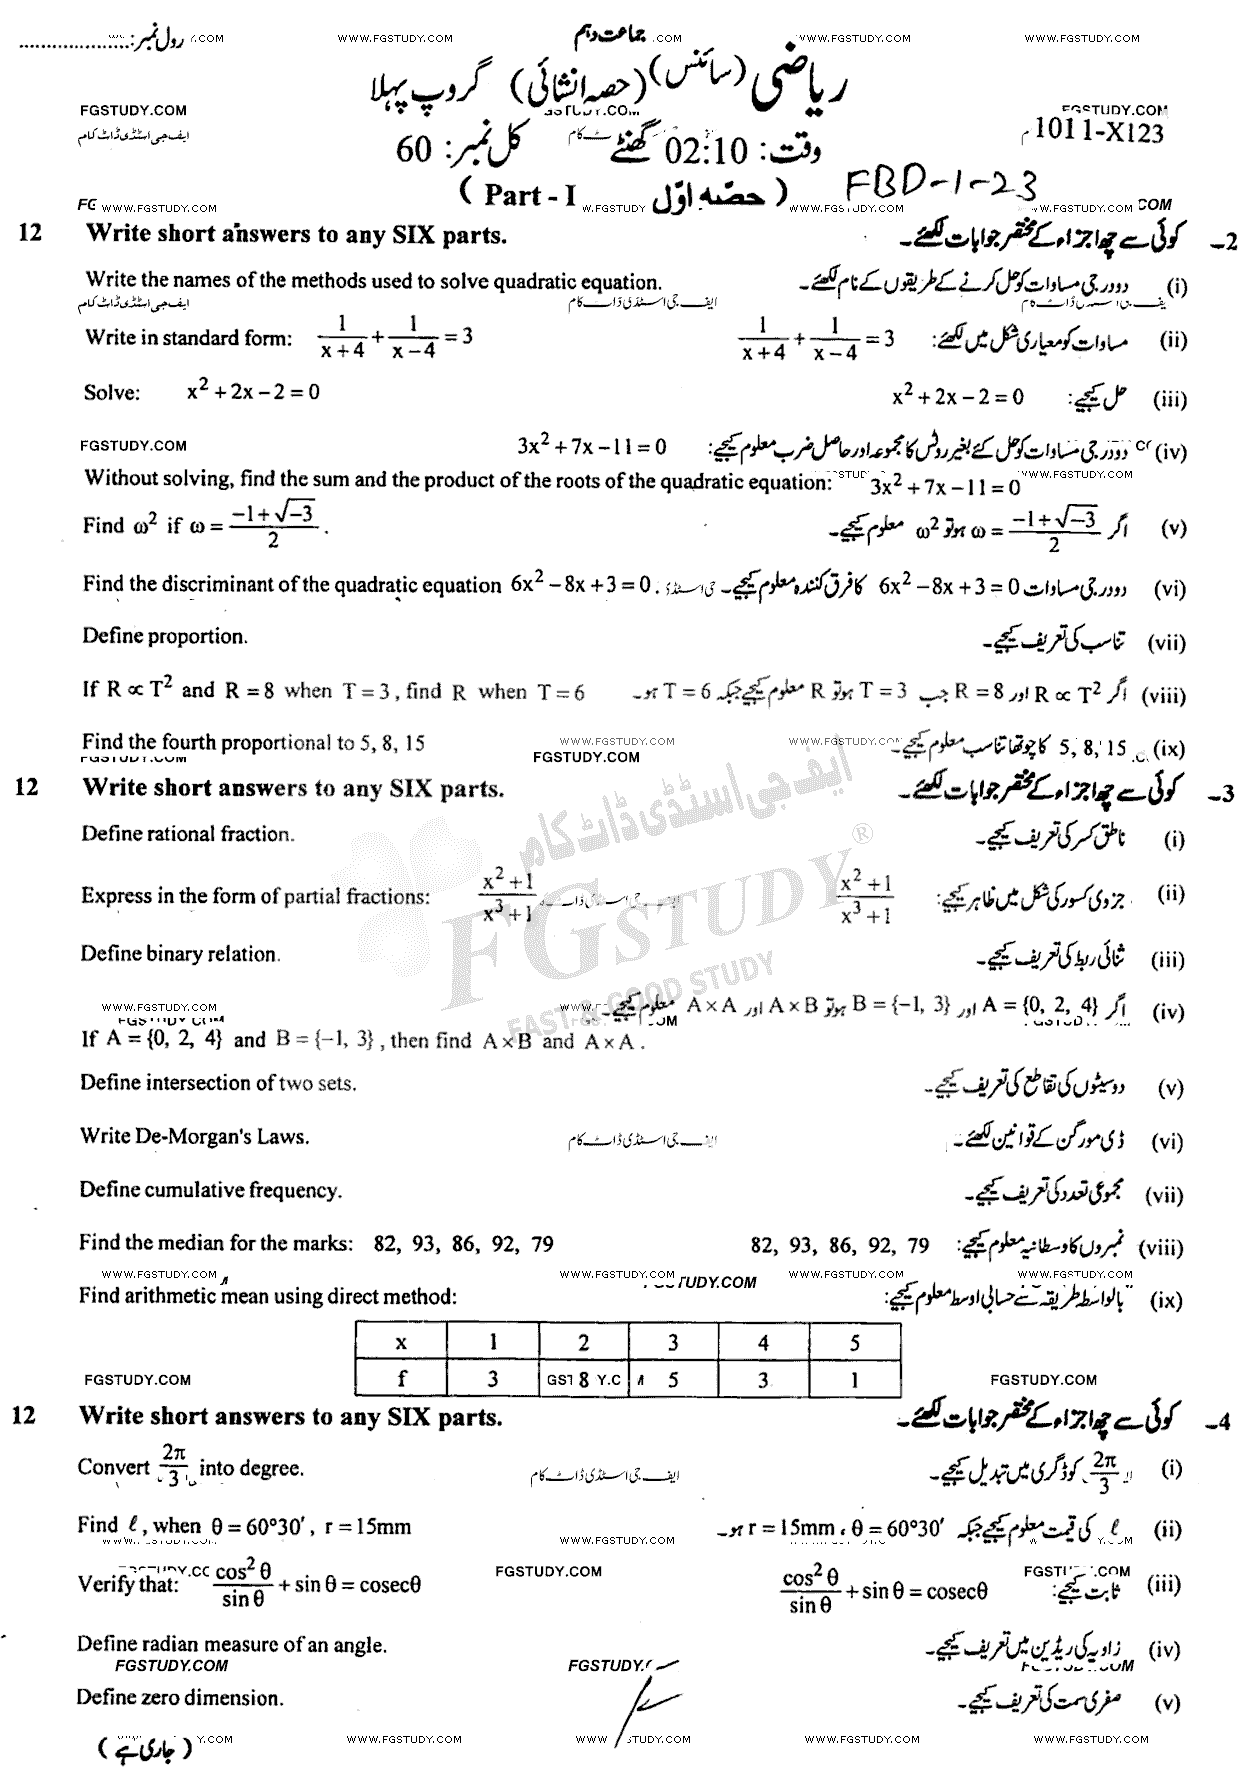 رول نمبر: ..................... Y.COM WWW.FGSTUDY.COM جماعت دہم .COM WWW.FGSTUDY.COM
ریاضی (سائنس) (حصہ انشائی) گروپ پہلا
FGSTUDY.COM FGSTUDY.COM
ایف جی اسٹڈی ڈاٹ کام وقت: 02:10 گھنٹے کل نمبر: 60 1011-X123
( Part - I حصّہ اوّل ) FBD-1-23
WWW.FGSTUDY.COM W.FGSTUDY WWW.FGSTUDY.COM W.FGSTUDY.COM COM
12 Write short answers to any SIX parts. کوئی سے چھ اجزاء کے مختصر جوابات لکھئے۔ 2-
Write the names of the methods used to solve quadratic equation. دو درجی مساوات کو حل کرنے کے طریقوں کے نام لکھئے۔ (i)
ایف جی اسٹڈی ڈاٹ کام ایف جی اسٹڈی ڈاٹ کام
Write in standard form: 1/(x+4) + 1/(x-4) = 3 1/(x+4) + 1/(x-4) = 3 مساوات کو معیاری شکل میں لکھئے: (ii)
Solve: x² + 2x - 2 = 0 x² + 2x - 2 = 0 حل کیجیے: (iii)
FGSTUDY.COM 3x² + 7x - 11 = 0 دو درجی مساوات کو حل کئے بغیر روٹس کا مجموعہ اور حاصل ضرب معلوم کیجیے: (iv)
Without solving, find the sum and the product of the roots of the quadratic equation: 3x² + 7x - 11 = 0 WWW.FGSTUDY.COM
Find ω² if ω = (-1+√-3)/2 . اگر ω = (-1+√-3)/2 ہو تو ω² معلوم کیجیے۔ (v)
Find the discriminant of the quadratic equation 6x² - 8x + 3 = 0. دو درجی مساوات 6x² - 8x + 3 = 0 کا فرق کنندہ معلوم کیجیے۔ (vi)
Define proportion. تناسب کی تعریف کیجیے۔ (vii)
If R ∝ T² and R = 8 when T = 3, find R when T = 6 اگر R ∝ T² اور R = 8 جب T = 3 ہو تو R معلوم کیجیے جبکہ T = 6 ہو۔ (viii)
Find the fourth proportional to 5, 8, 15 WWW.FGSTUDY.COM WWW.FGSTUDY.COM 5, 8, 15 کا چوتھا تناسب معلوم کیجیے۔ (ix)
FGSTUDY.COM FGSTUDY.COM
12 Write short answers to any SIX parts. کوئی سے چھ اجزاء کے مختصر جوابات لکھئے۔ 3-
ایف جی اسٹڈی ڈاٹ کام
Define rational fraction. ناطق کسر کی تعریف کیجیے۔ (i)
Express in the form of partial fractions: (x²+1)/(x³+1) (x²+1)/(x³+1) جزوی کسور کی شکل میں ظاہر کیجیے: (ii)
FGSTUDY®
FAST & GOOD STUDY
Define binary relation. ثنائی ربط کی تعریف کیجیے۔ (iii)
WWW.FGSTUDY.COM اگر A = {0, 2, 4} اور B = {-1, 3} ہو تو A×B اور A×A معلوم کیجیے۔ (iv)
If A = {0, 2, 4} and B = {-1, 3}, then find A×B and A×A.
Define intersection of two sets. دو سیٹوں کی تقاطع کی تعریف کیجیے۔ (v)
Write De-Morgan's Laws. ایف جی اسٹڈی ڈاٹ کام ڈی مورگن کے قوانین لکھئے۔ (vi)
Define cumulative frequency. مجموعی تعدد کی تعریف کیجیے۔ (vii)
Find the median for the marks: 82, 93, 86, 92, 79 82, 93, 86, 92, 79 نمبروں کا وسطانیہ معلوم کیجیے: (viii)
WWW.FGSTUDY.COM WWW.FGSTUDY.COM WWW.FGSTUDY.COM WWW.FGSTUDY.COM
Find arithmetic mean using direct method: بالواسطہ طریقہ سے حسابی اوسط معلوم کیجیے: (ix)
x 1 2 3 4 5
FGSTUDY.COM f 3 8 5 3 1 FGSTUDY.COM
12 Write short answers to any SIX parts. کوئی سے چھ اجزاء کے مختصر جوابات لکھئے۔ 4-
Convert 2π/3 into degree. ایف جی اسٹڈی ڈاٹ کام 2π/3 کو ڈگری میں تبدیل کیجیے۔ (i)
Find ℓ, when θ = 60°30′, r = 15mm ℓ کی قیمت معلوم کیجیے جبکہ θ = 60°30′ ، r = 15mm ہو۔ (ii)
WWW.FGSTUDY.COM
Verify that: cos²θ/sinθ + sinθ = cosecθ FGSTUDY.COM cos²θ/sinθ + sinθ = cosecθ ثابت کیجیے: (iii)
Define radian measure of an angle. زاویہ کی ریڈین میں تعریف کیجیے۔ (iv)
FGSTUDY.COM
Define zero dimension. صفری سمت کی تعریف کیجیے۔ (v)
( جاری ہے ) Y.COM WWW.FGSTUDY.COM WWW STUDY.COM WWW.FGSTUDY.COM WWW.FGSTUDY.COM